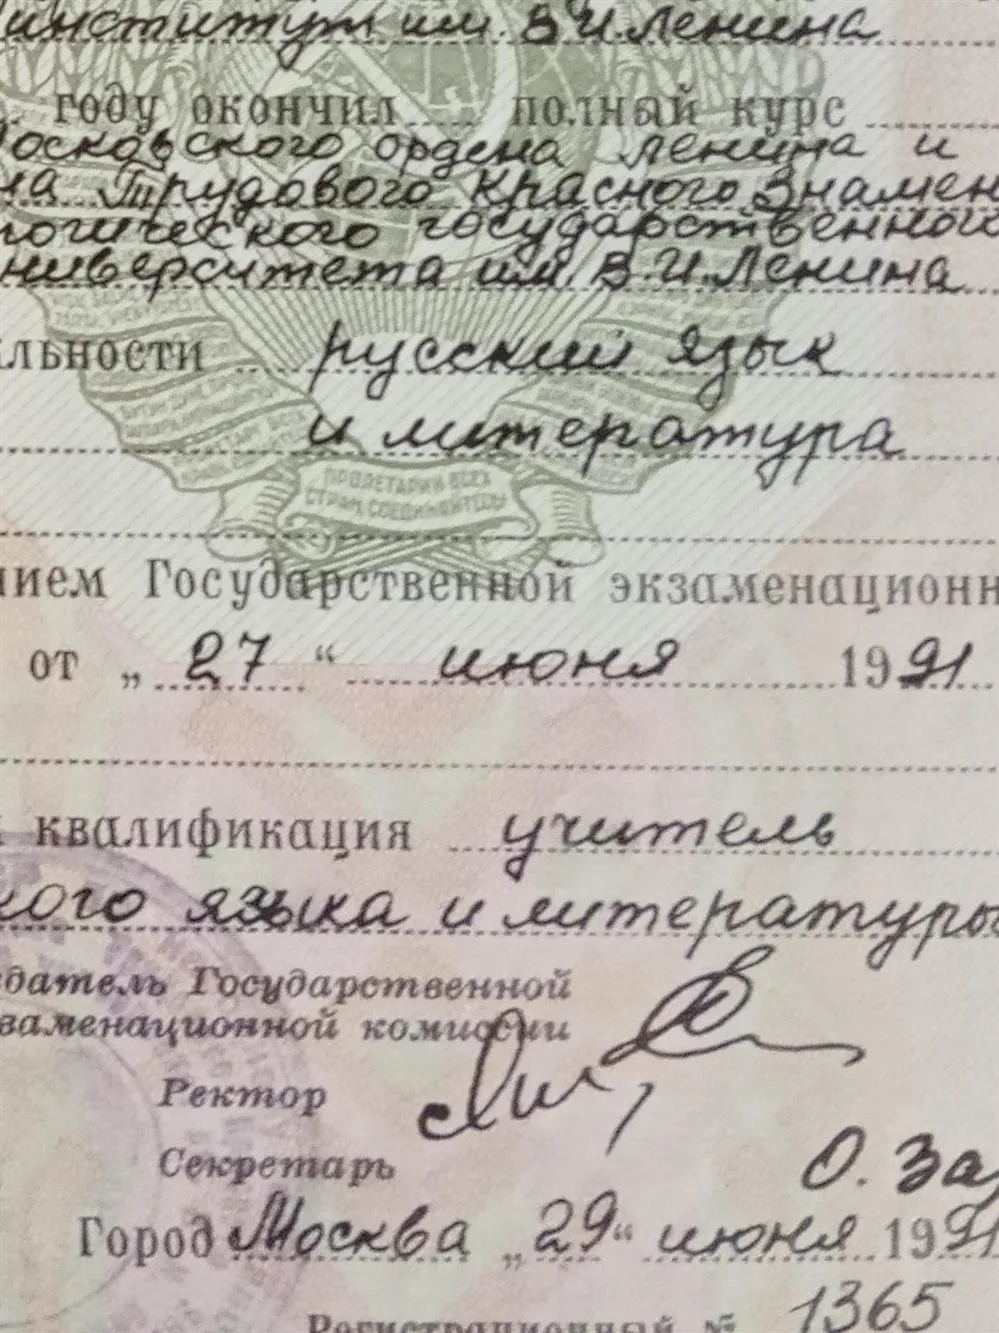 институт им. В.И.Ленина
году окончил полный курс
Московского ордена Ленина и
на Трудового Красного Знамен
гогического государственного
ниверситета им. В.И.Ленина
льности русский язык
и литература
ПРОЛЕТАРИИ ВСЕХ
СТРАН, СОЕДИНЯЙТЕСЬ!
нием Государственной экзаменационн
от „27“ июня 1991
квалификация учитель
кого языка и литературы
датель Государственной
заменационной комиссии
Ректор
Секретарь О. За
Город Москва „29“ июня 1991
Регистрационный № 1365